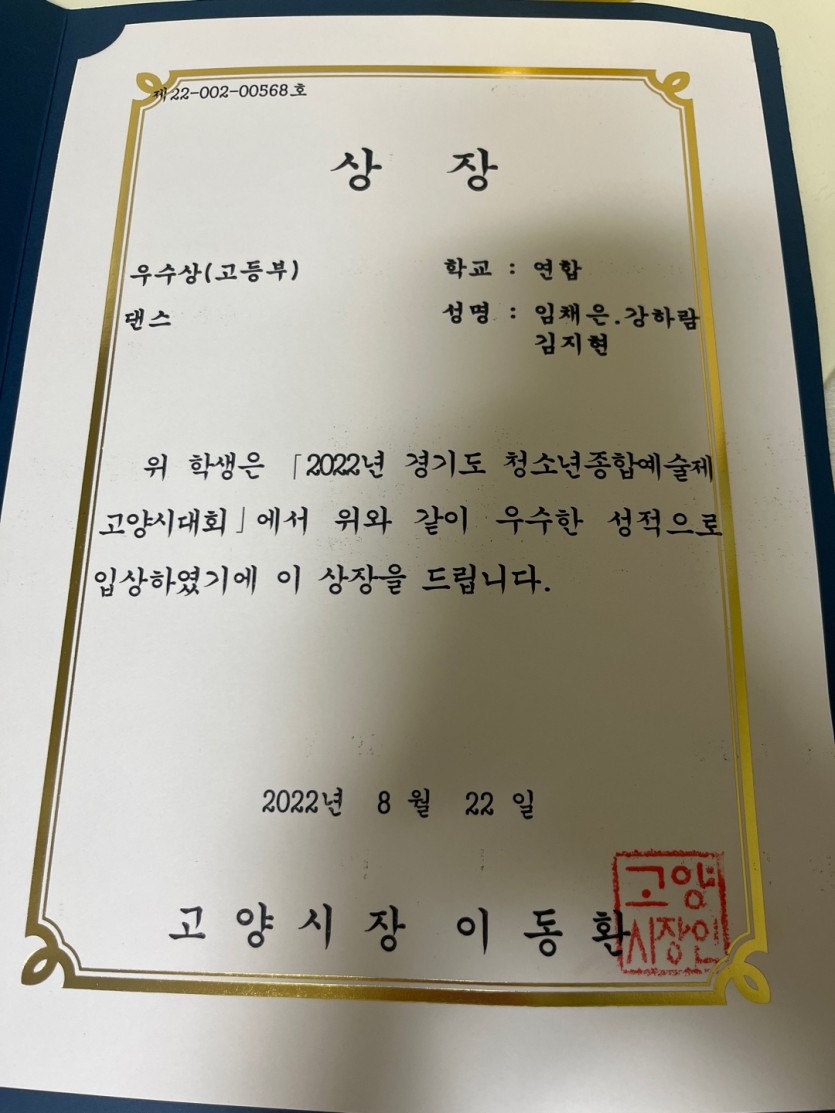 제22-002-00568호
상 장
우수상(고등부) 학교 : 연합
댄스 성명 : 임채은.강하람
김지현
위 학생은 「2022년 경기도 청소년종합예술제
고양시대회」에서 위와 같이 우수한 성적으로
입상하였기에 이 상장을 드립니다.
2022년 8월 22일
고양시장 이동환
고양
시장인